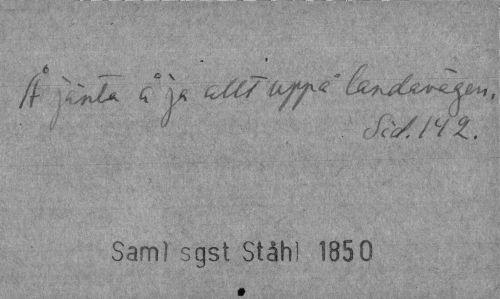 Å jänta å ja allt uppå landavägen.
Sid. 142.
Saml sgst Ståhl 1850